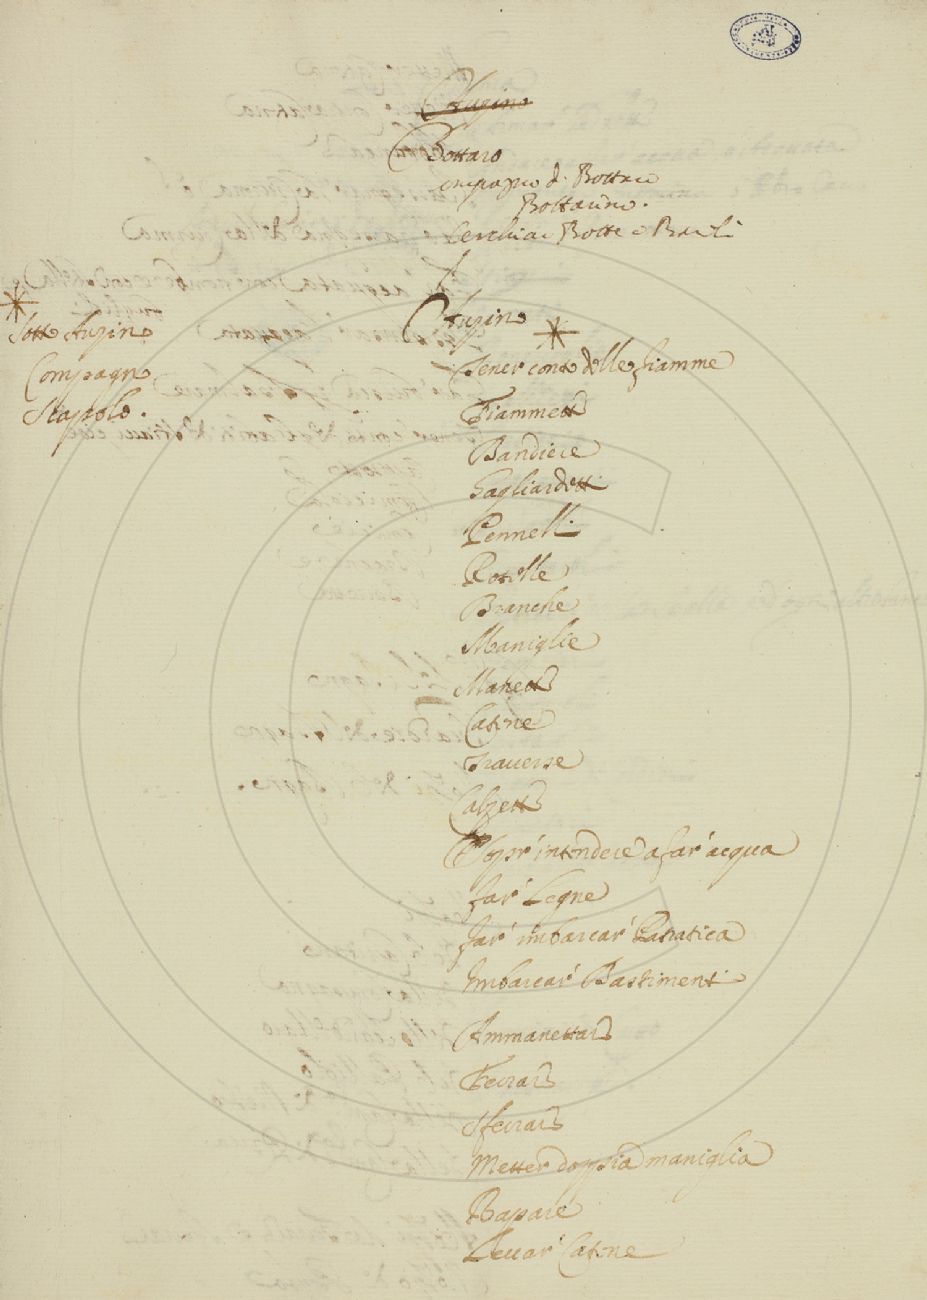 Aupino
Bottaro
compagno di Bottaro
Bottarino.
Cerchiar Botte e Barili
Aupino
Tener conto delle fiamme
Fiammette
Bandiere
Gagliardetti
Pennelli
Rotelle
Branche
Maniglie
Manette
Catene
Traverse
Calzette
Sopr' intendere a far' acqua
far' Legne
far' imbarcar' Panatica
Imbarcar' Bastimenti
Ammanettare
Ferrare
Sferrare
Metter doppia maniglia
Rapare
Levar' Catene
Sotto Aupino
Compagno
Scapolo.